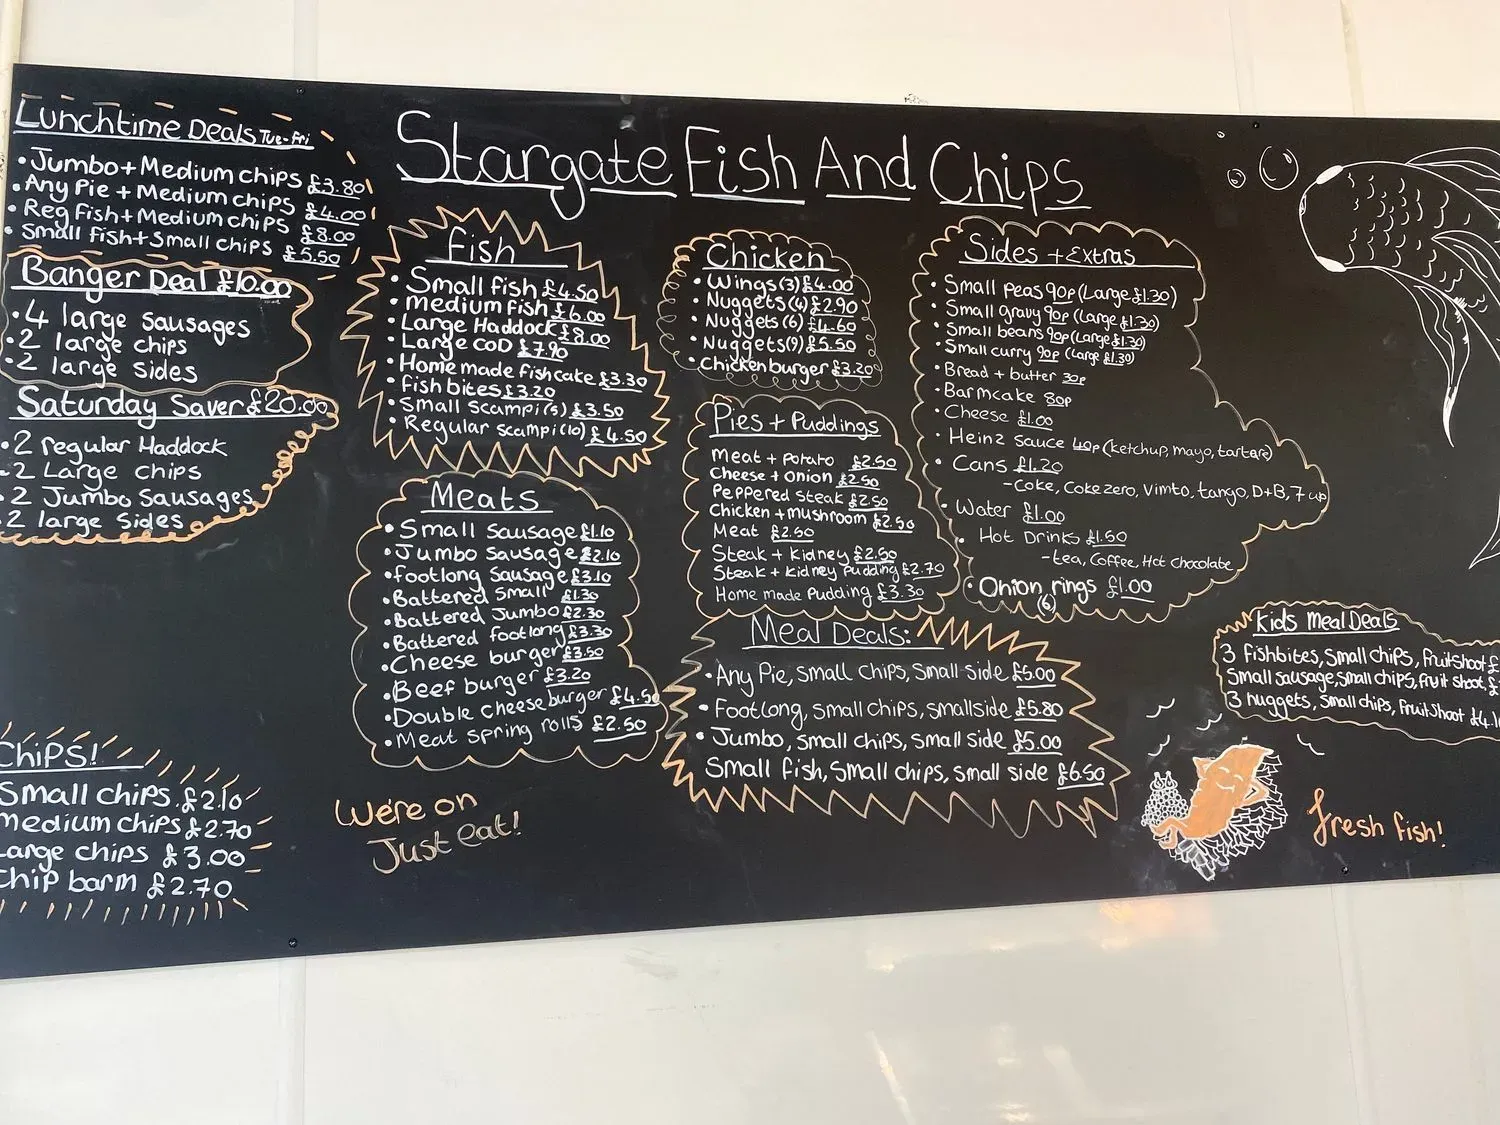 Lunchtime Deals Tue-Fri
• Jumbo + Medium chips £3.80
• Any Pie + Medium chips £4.00
• Reg fish + Medium chips £8.00
• Small fish + Small chips £5.50
Banger Deal £10.00
• 4 large sausages
• 2 large chips
• 2 large sides
Saturday Saver £20.00
• 2 regular Haddock
- 2 Large chips
• 2 Jumbo Sausages
• 2 large sides
ChiPS!
Small chips £2.10
Medium chips £2.70
Large chips £3.00
Chip barm £2.70
Stargate Fish And Chips
Fish
• Small fish £4.50
• medium fish £6.00
• Large Haddock £8.00
• Large COD £7.90
• Home made fishcake £3.30
• fish bites £3.20
• Small Scampi (5) £3.50
• Regular scampi (10) £4.50
Meats
• Small Sausage £1.10
• Jumbo Sausage £2.10
• footlong Sausage £3.10
• Battered Small £1.30
• Battered Jumbo £2.30
• Battered footlong £3.30
• Cheese burger £3.50
• Beef burger £3.20
• Double cheese burger £4.50
• Meat spring rolls £2.50
We're on
Just eat!
Chicken
• Wings (3) £4.00
• Nuggets (4) £2.90
• Nuggets (6) £4.60
• Nuggets (9) £5.50
• Chicken burger £3.20
Pies + Puddings
Meat + potato £2.50
Cheese + onion £2.50
Peppered steak £2.50
Chicken + mushroom £2.50
Meat £2.50
Steak + kidney £2.50
Steak + kidney Pudding £2.70
Home made Pudding £3.30
Meal Deals:
• Any Pie, small chips, Small side £5.00
• Footlong, small chips, small side £5.80
• Jumbo, small chips, small side £5.00
Small fish, small chips, small side £6.50
Sides + Extras
• Small peas 90p (Large £1.30)
• Small gravy 90p (Large £1.30)
• Small beans 90p (Large £1.30)
• Small curry 90p (Large £1.30)
• Bread + butter 30p
• Barmcake 80p
• Cheese £1.00
• Heinz sauce 40p (ketchup, mayo, tartare)
• Cans £1.20
- Coke, Coke zero, Vimto, tango, D+B, 7 up
• Water £1.00
• Hot Drinks £1.50
- tea, Coffee, Hot chocolate
• Onion rings £1.00
(6)
Kids Meal Deals
3 fishbites, Small chips, fruitshoot £
Small sausage, Small chips, fruit shoot, £
3 nuggets, small chips, fruitshoot £4.1
fresh fish!